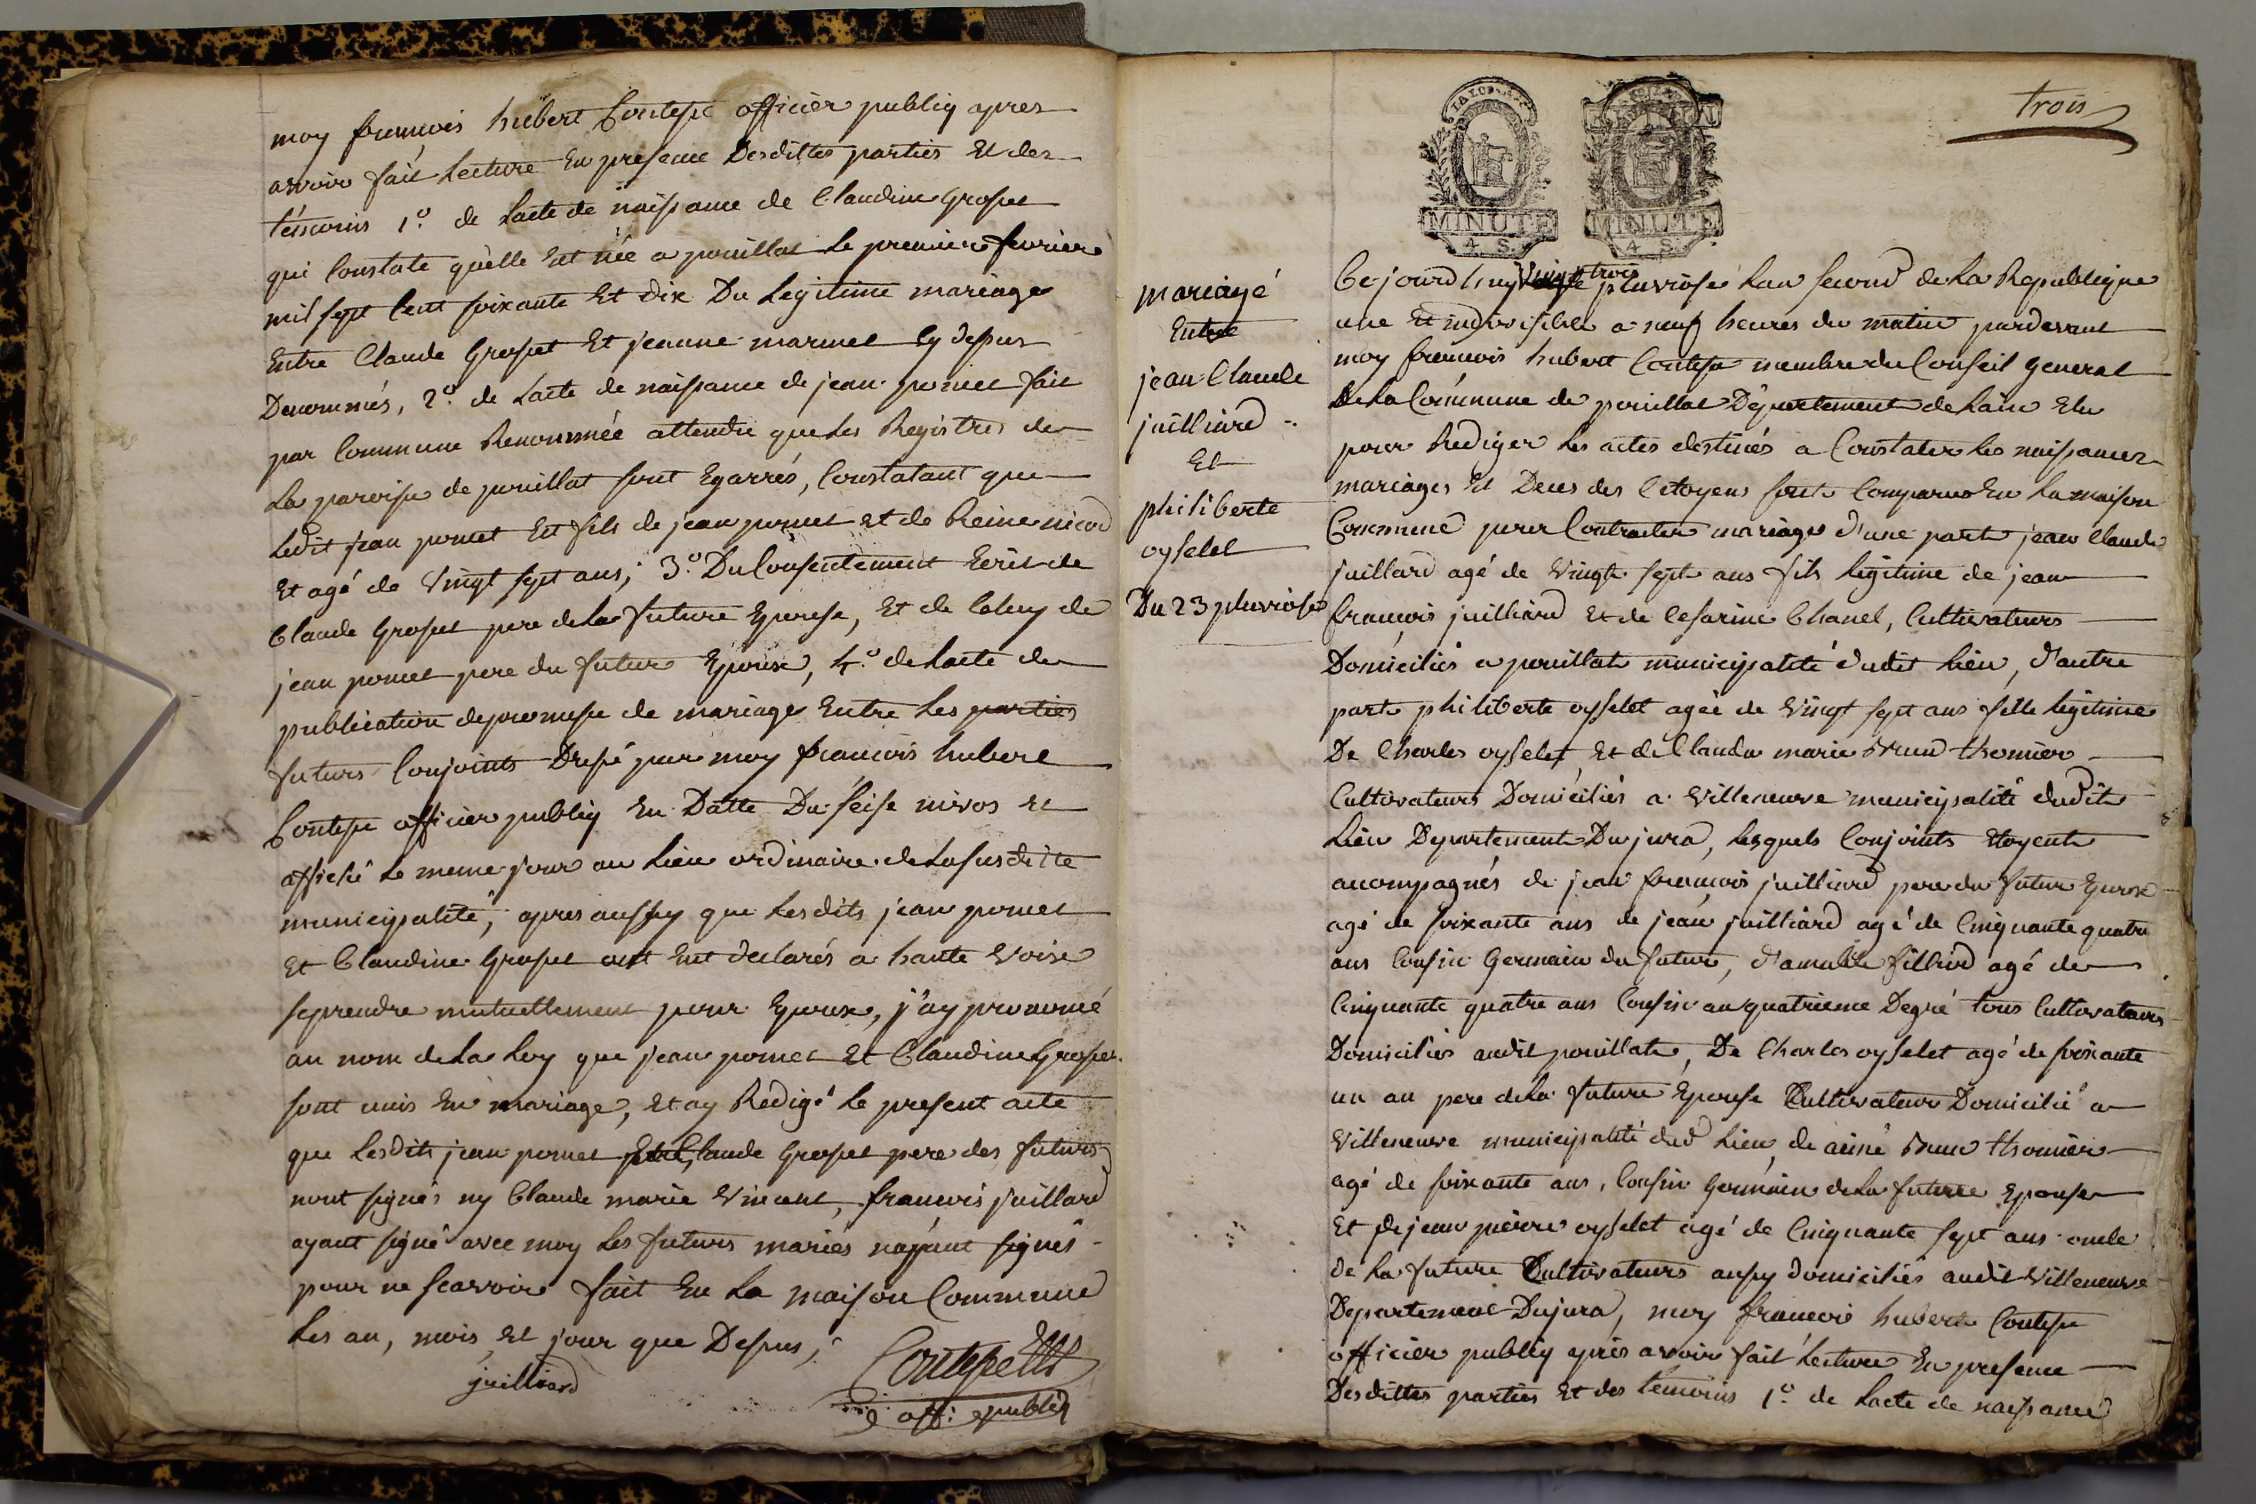 moy françois hubert Contesse officier publiq apres
avoir fait Lecture En presence Desdittes parties Et des
témoins 1.° de Lacte de naissance de Claudine Grospet
qui Constate quèlle Est née a pouillat le premier fevrier
mil sept Cent soixante Et dix Du Legitime mariage
Entre Claude Grospet Et jeanne marmet Cy dessus
Denommés, 2.° de Lacte de naissance de jean poncet fait
par Commune Renommée attendu que Les Registres de
La paroisse de pouillat sont Egarrés, Constatant que
Ledit jean poncet Est fils de jean poncet et de Reine nicod
Et agé de Vingt sept ans; 3.° Du Consentement Ecrit de
Claude Grospet pere de La future Epouse, Et de Celuy de
jean poncet pere du futur Epoux, 4.° de Lacte de
publication de promesse de mariage Entre Les parties
futurs Conjoints Dressé par moy françois hubert
Contesse officier publiq En Datte Du seise nivos Et
affiché Le meme jour au Lieu ordinaire de La susditte
municipalité, apres aussy que Lesdits jean poncet
Et Claudine Grospet ont Eut declarés a haute Voix
se prendre mutuellement pour Epoux, j'ay prononcé
au nom de La Loy que jean poncet Et Claudine Grospet
sont unis En mariage, Et ay Rédigé Le present acte
que Lesdits jean poncet Et Claude Grospet pere des futurs
nont signés ny Claude marie Vincent, francois juillard
ayant signé avec moy Les futurs mariés nayant signés
pour ne scavoir fait En La maison Commune
Les an, mois, Et jour que Dessus,
juilliard
Contesse
off: publiq
trois
MINUTE
4 S.
MINUTE
4 S.
mariagé
Entre
jean Claude
juilliard
Et
philiberte
oyselet
Du 23 pluviose
Cejourdhuy Vingt trois pluviose Lan second de La Republique
une Et indivisible a neuf heures du matin pardevant
moy francois hubert Contesse membre du Conseil general
De La Commune de pouillat Département de Lain Elu
pour Rediger Les actes destinés a Constater Les naissances
mariages Et Deces des Citoyens sont Comparus En La maison
Commune pour Contracter mariage d'une part jean Claude
juillard agé de Vingt sept ans fils legitime de jean
françois juilliard Et de Cesarine Chanel, Cultivateurs
Domiciliés a pouillat municipalité dudit Lieu, d'autre
part philiberte oyselet agée de Vingt sept ans fille legitime
De Charles oyselet Et de Clauda marie brun thomier
Cultivateurs Domiciliés a Villeneuve municipalité dudit
Lieu Departement Du jura, Lesquels Conjoints Etoyent
acompagnés de jean françois juilliard pere du futur Epoux
agé de soixante ans de jean juilliard agé de Cinquante quatre
ans Cousin Germain du futur, d'amable fillird agé de
Cinquante quatre ans Cousin au quatrieme Degré tous Cultivateurs
Domiciliés audit pouillat, De Charles oyselet agé de soixante
un an pere de La future Epouse Cultivateur Domicilié a
Villeneuve municipalité dud Lieu, de aimé brun thomier
agé de soixante ans, Cousin Germain de La future Epouse
Et de jean pierre oyselet agé de Cinquante sept ans oncle
de La future Cultivateurs aussy domiciliés audit Villeneuve
Departement Du jura, moy francois hubert Contesse
officier publiq après avoir fait Lecture En presence
Desdittes parties Et des temoins 1.° de Lacte de naissance